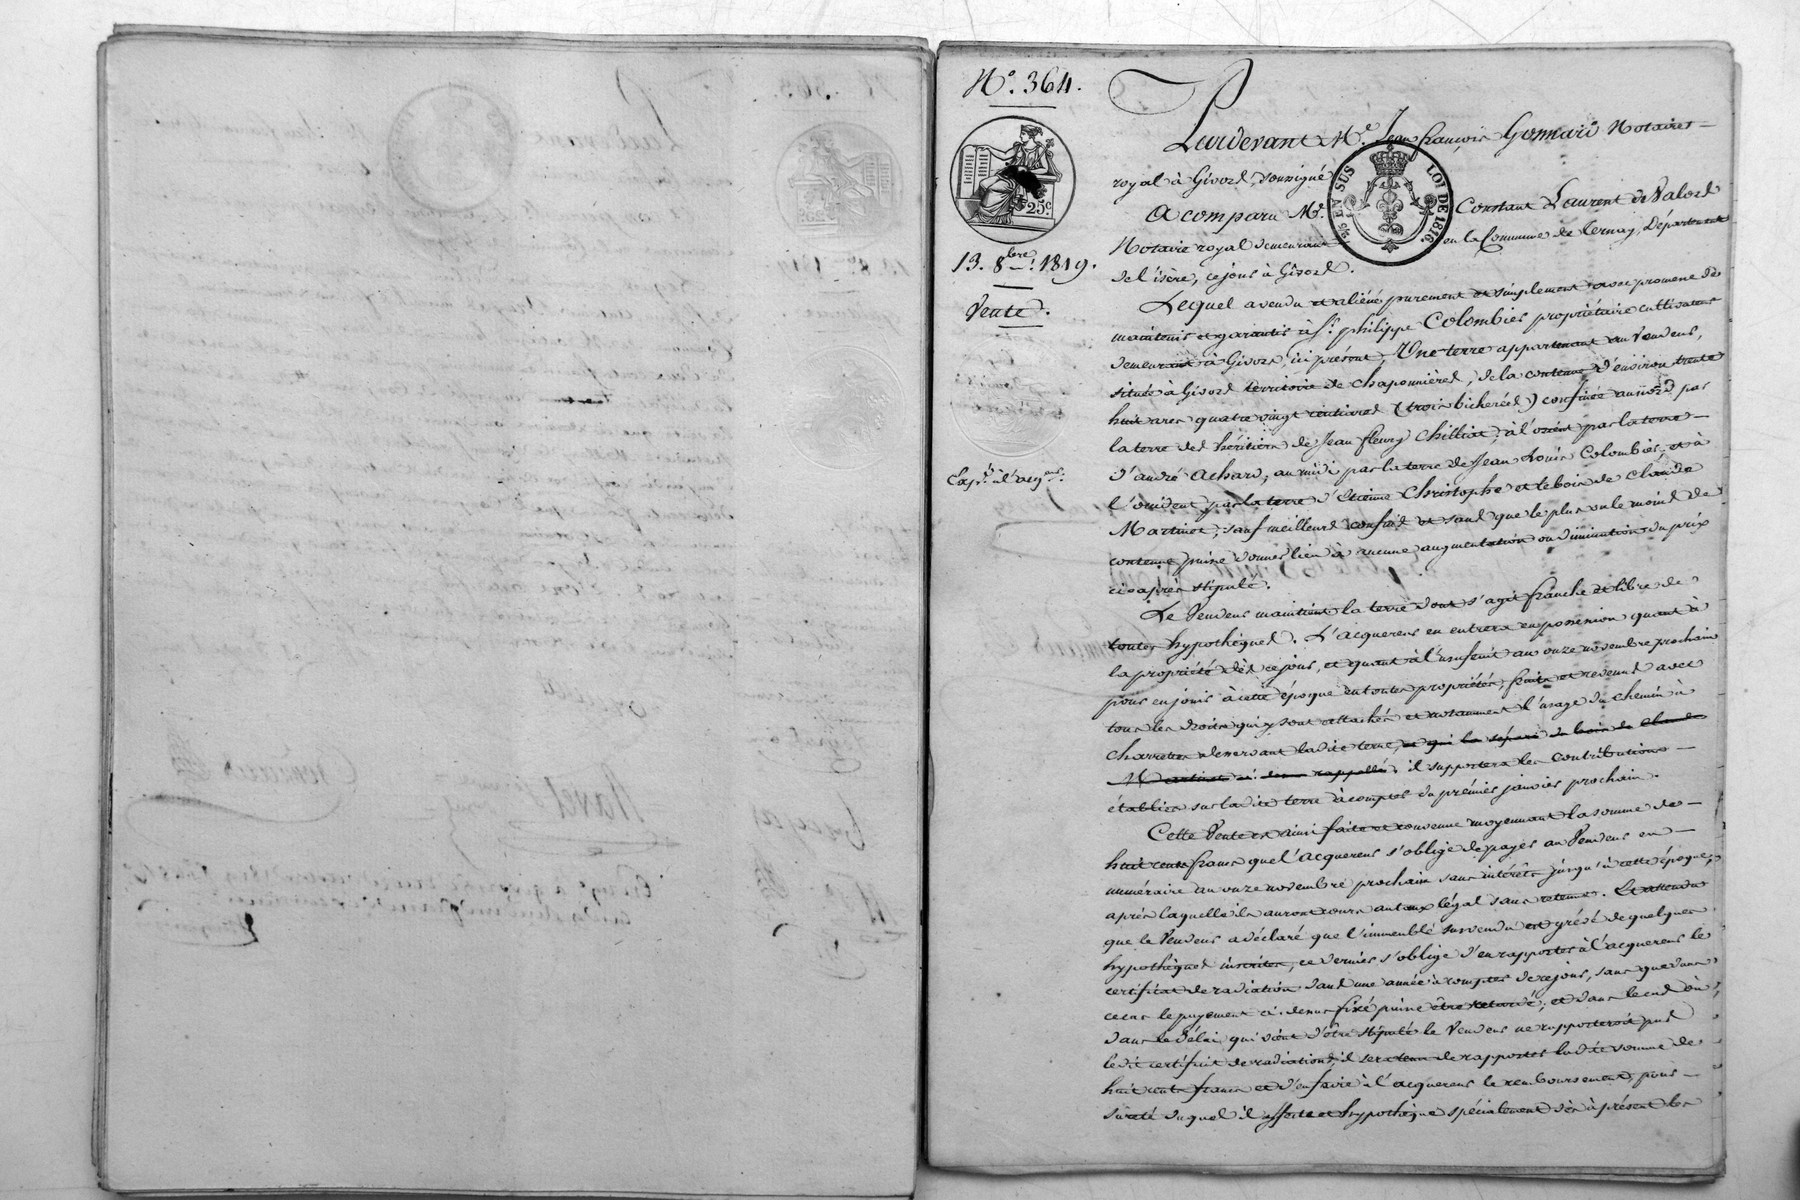 N.° 364.
25c.
13. 8bre. 1819.
Vente.
Exp.n à l'acq.eur
Pardevant M.e Jean françois Gonnard Notaire
royal à Givors, soussigné
T. 25 EN SUS LOI DE 1816.
A comparu M.r Constant Laurent De Valors
Notaire royal demeurant en la Commune de Ternay, Département
de l'isère, ce jour à Givors.
Lequel a vendu et aliéné purement et simplement avec promesse de
maintenir et garantir à S.r philippe Colombier propriétaire cultivateur
demeurant à Givors, ici présent, Une terre appartenant au Vendeur,
située à Givors territoire de Chaponnières, de la contenue d'environ trente
huit ares quatre vingt centiares (trois bicherées) confinée au nord par
la terre des héritiers de Jean fleury Chilliat, à l'orient par la terre
d'andré Achard, au midi par la terre de Jean Louis Colombier, et à
l'occident par la terre d'Etienne Christophe et le bois de Claude
Martinet, sauf meilleurs confins et sans que le plus ou le moins de
contenue puisse donner lieu à aucune augmentation ou diminution du prix
ci-après stipulé.
Le Vendeur maintient la terre dont s'agit franche et libre de
toutes hypothèques. L'acquereur en entrera en possession quant à
la propriété dès ce jour, et quant à l'usufruit au onze novembre prochain
pour en jouir à cette époque en toutes propriétés, fruits et revenus avec
tous les droits qui y sont attachés et notamment l'usage du chemin à
Charrettes desservant ladite terre, et qui la sépare du bois de Claude
Martinet ci-dessus rappellé, il supportera les contributions
établies sur ladite terre à compter du premier janvier prochain.
Cette Vente est ainsi faite et convenue moyennant la somme de
huit cents francs que l'acquereur s'oblige de payer au Vendeur en
numéraire au onze novembre prochain sans intérêts jusqu'à cette époque,
après laquelle ils auront cours au taux légal sans retenue. Et attendu
que le Vendeur a déclaré que l'immeuble sus vendu est grévé de quelques
hypothèques inscrites, ce dernier s'oblige d'en rapporter à l'acquereur le
certificat de radiation dans une année à compter de ce jour, sans que dans
ce cas le payement ci-dessus fixé puisse être retardé; et dans le cas où
dans le délai qui vient d'être stipulé le Vendeur ne rapporteroit pas
ledit certificat de radiation, il sera tenu de rapporter ladite somme de
huit cents francs et d'en faire à l'acquereur le remboursement, pour
sureté duquel il affecte et hypothèque spécialement dès à présent les